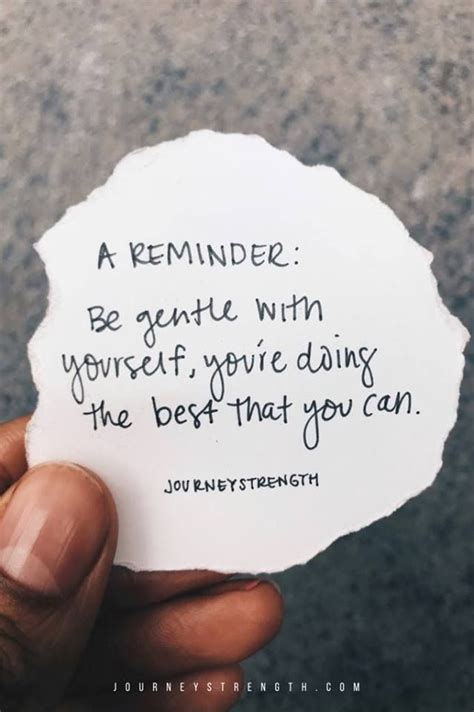 A REMINDER:
Be gentle with
yourself, you're doing
the best that you can.
JOURNEYSTRENGTH
JOURNEYSTRENGTH.COM